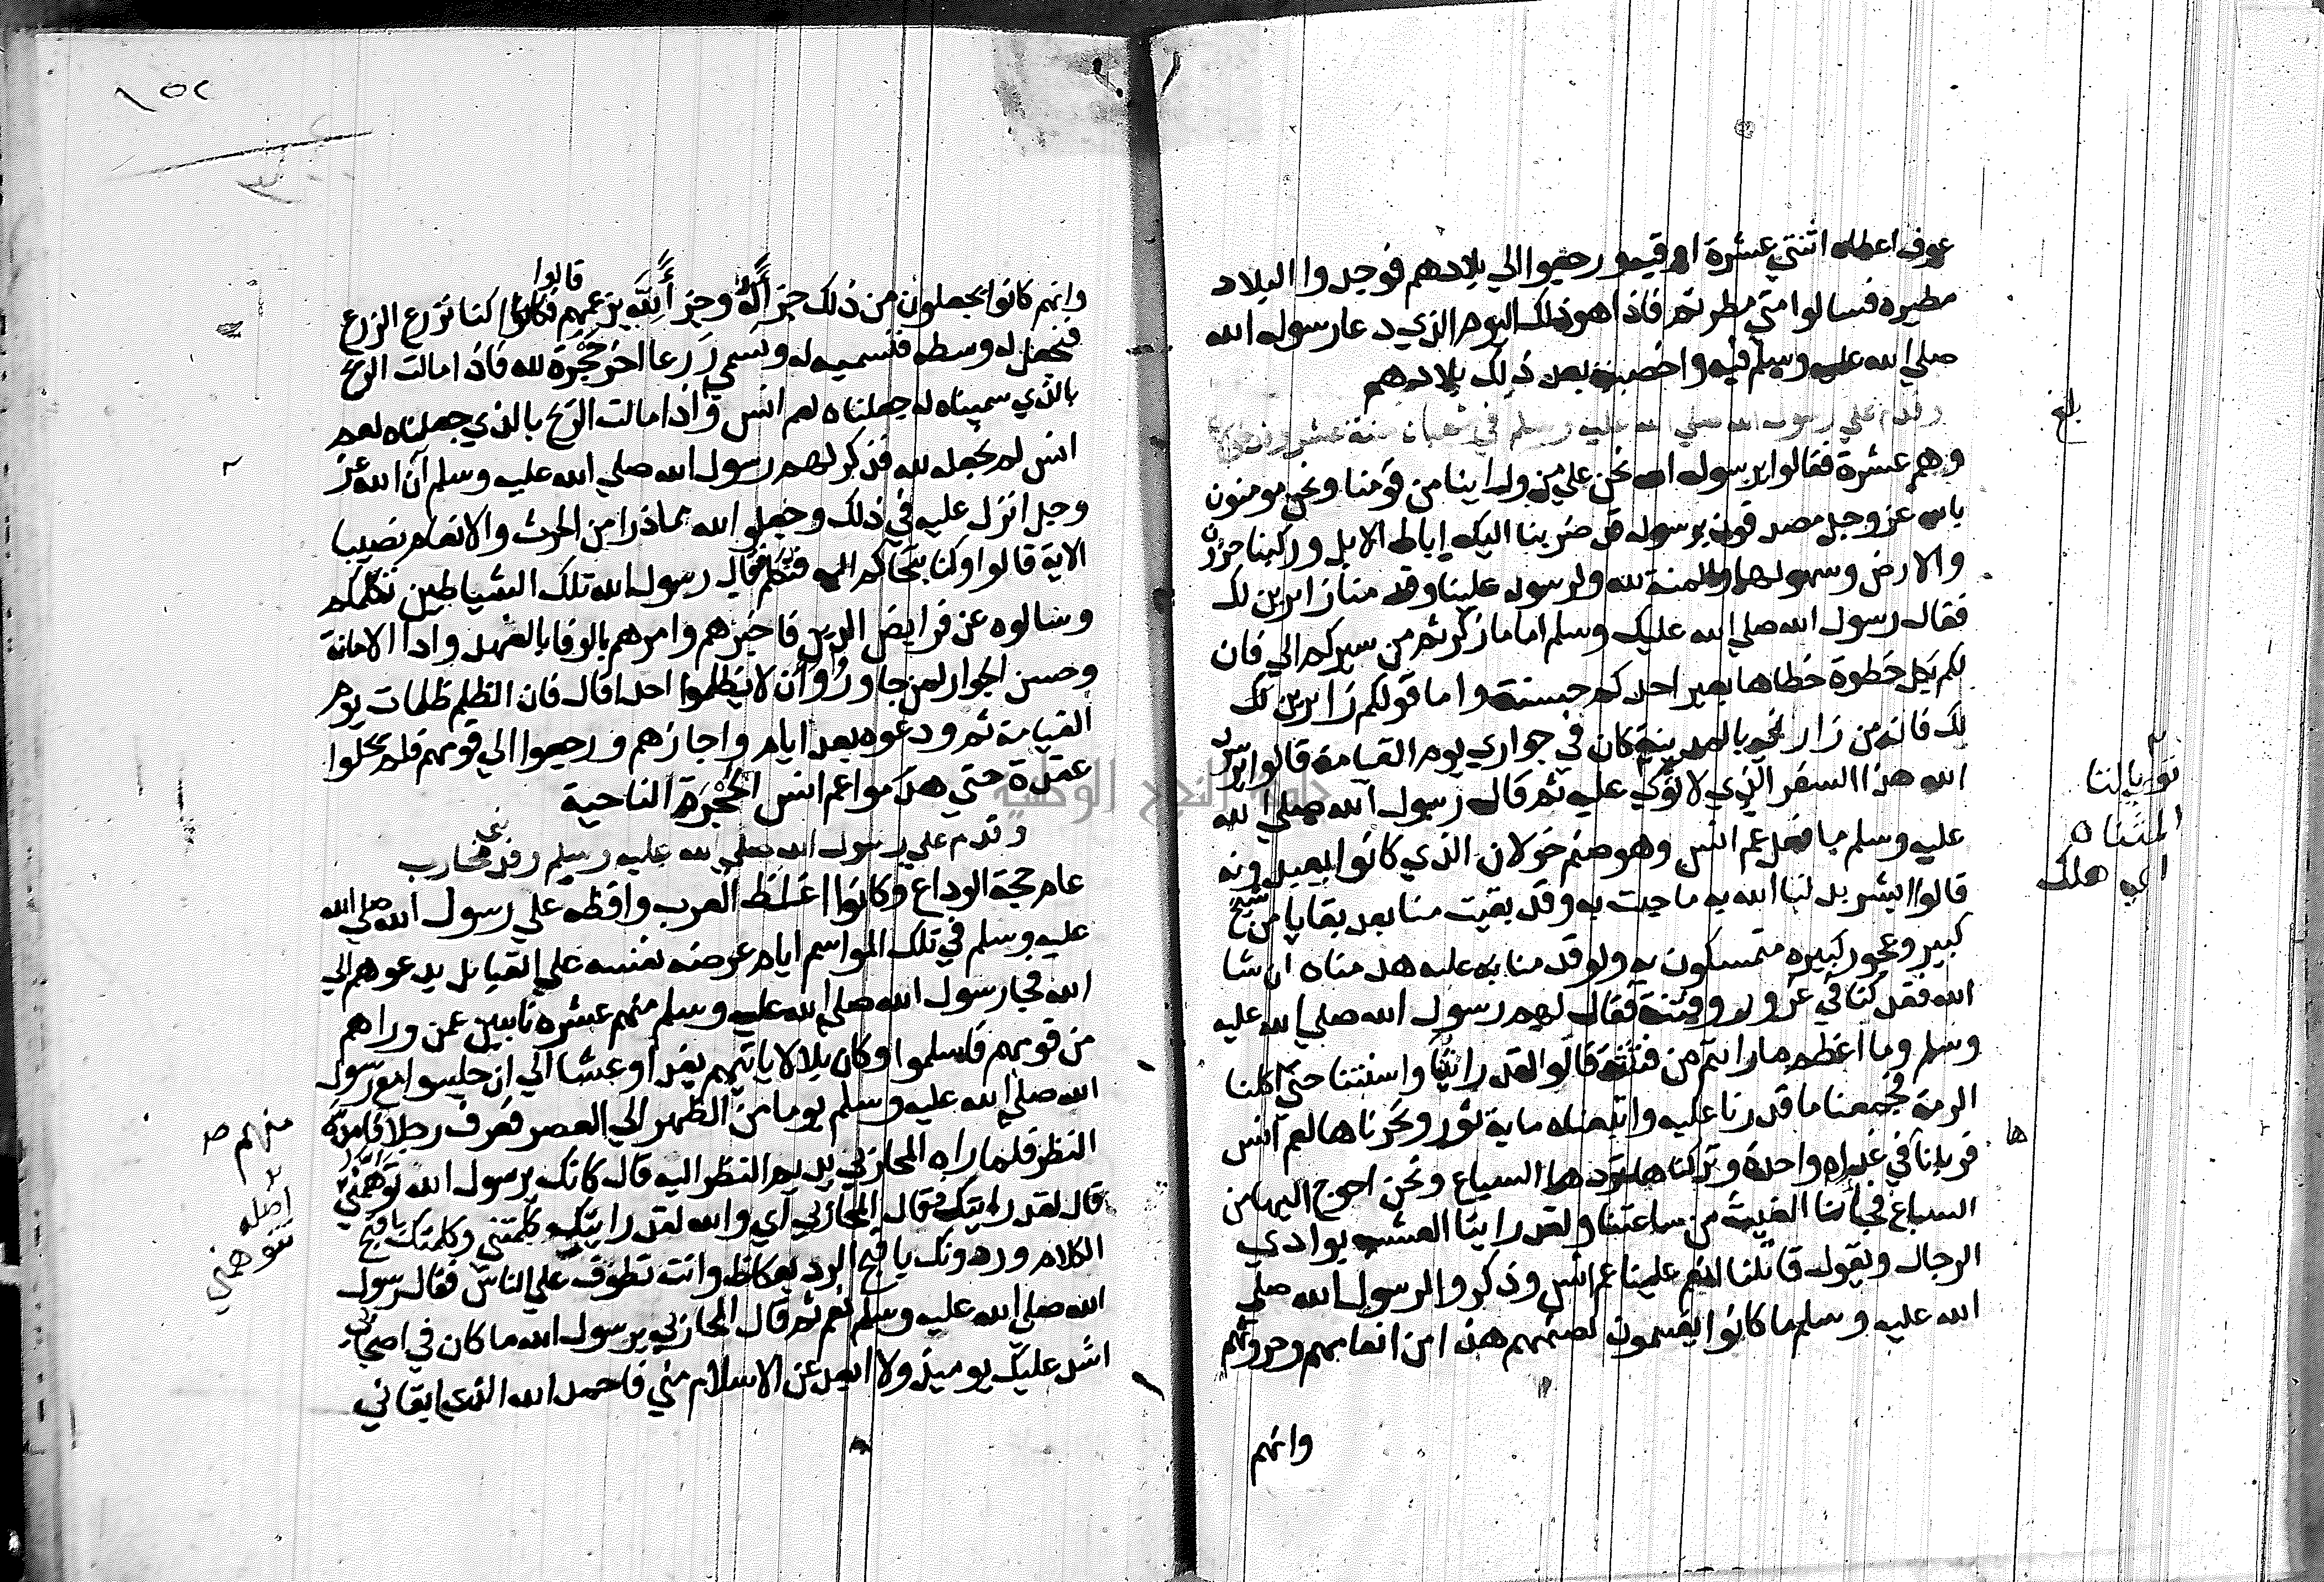 عوف اعطاه اثنتي عشرة اوقيه ورجعوا الي بلادهم فوجدوا البلاد
مطيره فسالوا متي مطرتم فاذا هو ذلك اليوم الذي دعا رسول الله
صلي الله عليه وسلم فيه واخصبت بعد ذلك بلادهم
وقدم علي رسول الله صلي الله عليه وسلم في شعبان سنة عشر وفد خولان
وهم عشرة فقالوا يرسول الله نحن علي من وراينا من قومنا ونحن مومنون
بالله عز وجل مصدقون برسوله قد ضربنا اليك اباط الابل وركبنا حزون
والارض وسهولها والمنة لله ولرسوله علينا وقدمنا زايرين لك
فقال رسول الله صلي الله عليك وسلم اما ما ذكرتم من سيركم الي فان
لكم بكل خطوة خطاها بعير احدكم حسنة واما قولكم زايرين لك
لك فانه من زارني بالمدينة كان في جواري يوم القيامة قالوا يرسول
الله هذا السفر الذي لا توي عليه ثم قال رسول الله صلي الله
عليه وسلم ما فعل عم انس وهو صنم خولان الذي كانوا يعبدونه
قالوا ابشر بدلنا الله به ما جيت به وقد بقيت منا بعد بقايا من شيخ
كبير وعجوز كبيره متمسكون به ولو قدمنا به عليه هدمناه ان شا
الله فقد كنا في غرور وفتنة فقال لهم رسول الله صلي الله عليه
وسلم وما اعظم ما رايتم من فتنته قالوا لقد رايتنا واسنتنا حتي اكلنا
الرمة فجمعنا ما قدرنا عليه وابتعنا به ماية ثور ونحرناها لعم انس
قربانا في غداه واحدة وتركناها تردها السباع ونحن احوج اليها من
السباع فجانا الغيث من ساعتنا ولقد راينا العشب يوادي
الرجال ويقول قائلنا انعم علينا عم انس وذكروا لرسول الله صلي
الله عليه وسلم ما كانوا يقسمون لصنمهم هذا من انعامهم وحروثهم
وانهم
بلغ
توي بالتا
المثناه
اي هلك
ها
١٥٢
وانهم كانوا يجعلون من ذلك جزأً له وجزأً لله بزعمهم قالوا كنا نزرع الزرع
فنجعل له وسطه فنسميه له ونسمي زرعا اخر حجرة لله فاذا مالت الريح
بالذي سميناه له جعلناه لعم انس واذا مالت الريح بالذي جعلناه لعم
انس لم نجعله لله فذكر لهم رسول الله صلي الله عليه وسلم ان الله عز
وجل انزل عليه في ذلك وجعلوا لله مما ذرا من الحرث والانعام نصيبا
الاية قالوا وكنا نتحاكم اليه فنكلم فقال رسول الله تلك الشياطين تكلمكم
وسالوه عن فرايض الدين فاخبرهم وامرهم بالوفا بالعهد وادا الامانة
وحسن الجوار لمن جاوروا وأن لا يظلموا احدا قال فان الظلم ظلمات يوم
القيامة ثم ودعوه بعد ايام واجازهم ورجعوا الي قومهم فلم يحلوا
عقدة حتي هدموا عم انس الحُجْرَة الناحية
وقدم علي رسول الله صلي الله عليه وسلم وفد محارب
عام حجة الوداع وكانوا اغلظ العرب وافظه علي رسول الله صلي الله
عليه وسلم في تلك المواسم ايام عرضه نفسه علي القبايل يدعوهم الي
الله فجا رسول الله صلي الله عليه وسلم منهم عشره نايبين عمن وراهم
من قومهم فاسلموا وكان بلالا ياتيهم بغدا وعشا الي ان جلسوا مع رسول
الله صلي الله عليه وسلم يوما من الظهر الي العصر فعرف رجلا فامده
النظر فلما راه المحاربي يديم النظر اليه قال كانك يرسول الله توهمني
قال لقد رايتك فقال المحاربي اي والله لقد رايتك وكلمتني وكلمتك باقبح
الكلام ورددتك باقبح الرد بعكاظ وانت تطوف علي الناس فقال رسول
الله صلي الله عليه وسلم نعم ثم قال المحاربي يرسول الله ما كان في اصحابي
اشد عليك يوميذ ولا ابعد عن الاسلام مني فاحمد الله الذي ابقاني
منهم صح
اصله
تتوهمني
جامعة النجاح الوطنية